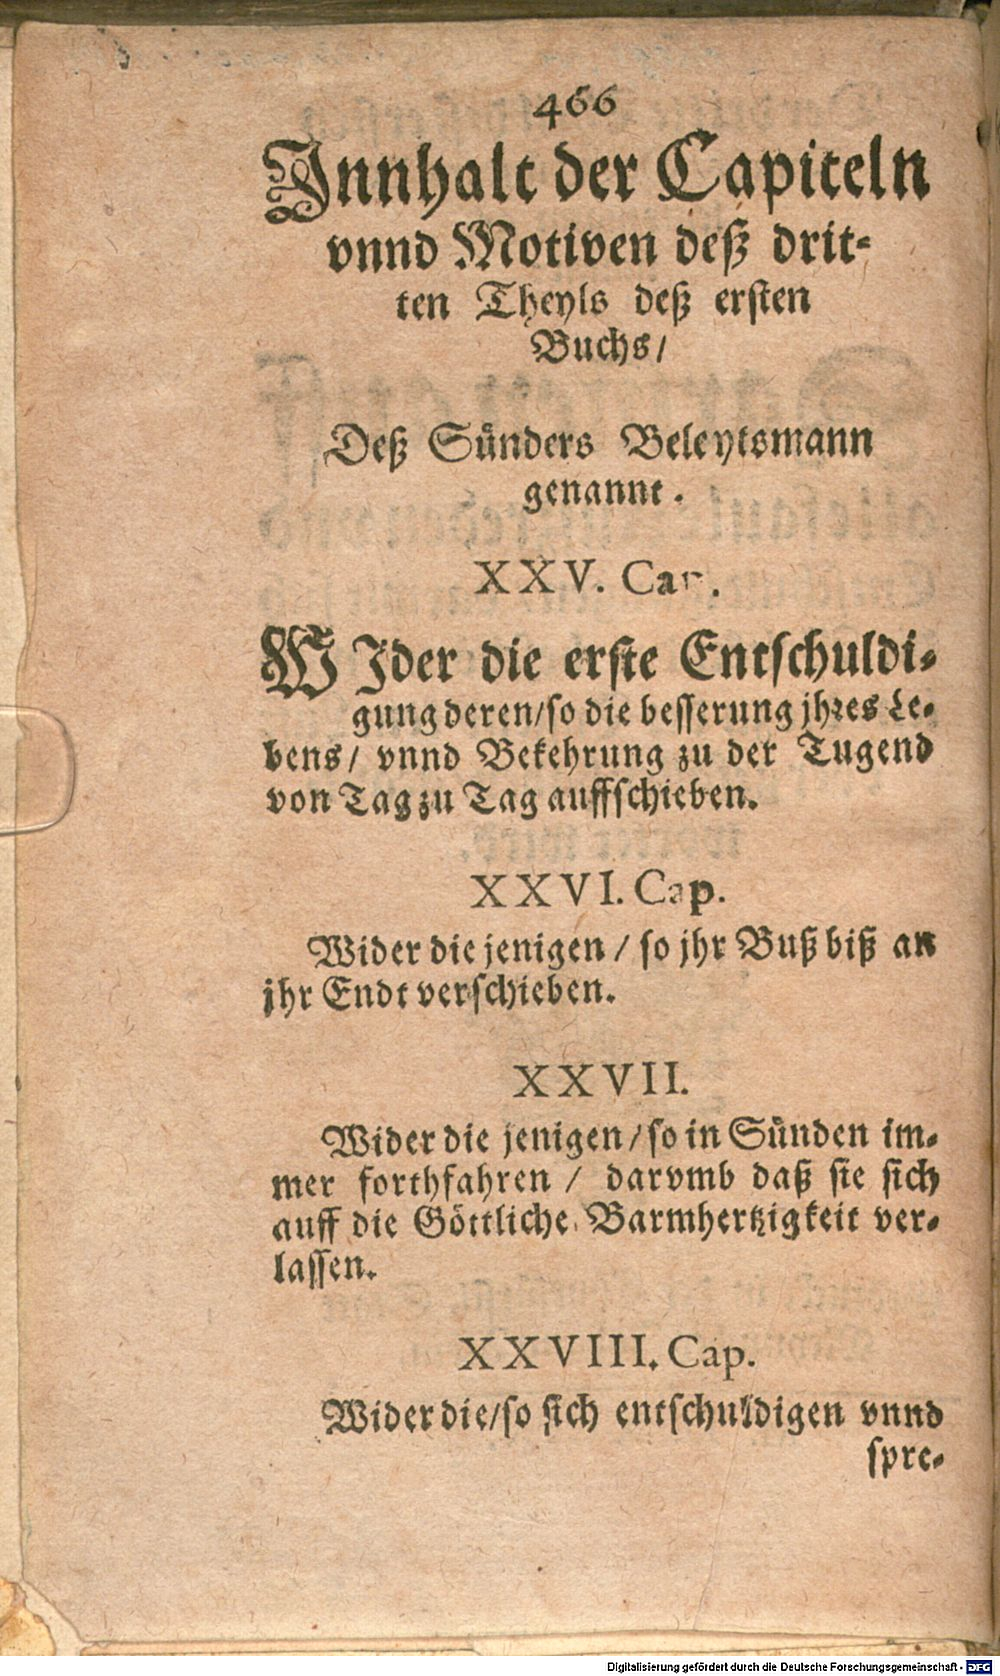 466
Innhalt der Capiteln
vnnd Motiven deß drit-
ten Theyls deß ersten
Buchs/
Deß Sünders Beleytsmann
genannt.
XXV. Cap.
WIder die erste Entschuldi-
gung deren/so die besserung jhres Le-
bens/ vnnd Bekehrung zu der Tugend
von Tag zu Tag auffschieben.
XXVI. Cap.
Wider die jenigen / so jhr Buß biß an
jhr Endt verschieben.
XXVII.
Wider die jenigen/so in Sünden im-
mer forthfahren / darvmb daß sie sich
auff die Göttliche Barmhertzigkeit ver-
lassen.
XXVIII. Cap.
Wider die/so sich entschuldigen vnnd
spre-
Digitalisierung gefördert durch die Deutsche Forschungsgemeinschaft - DFG